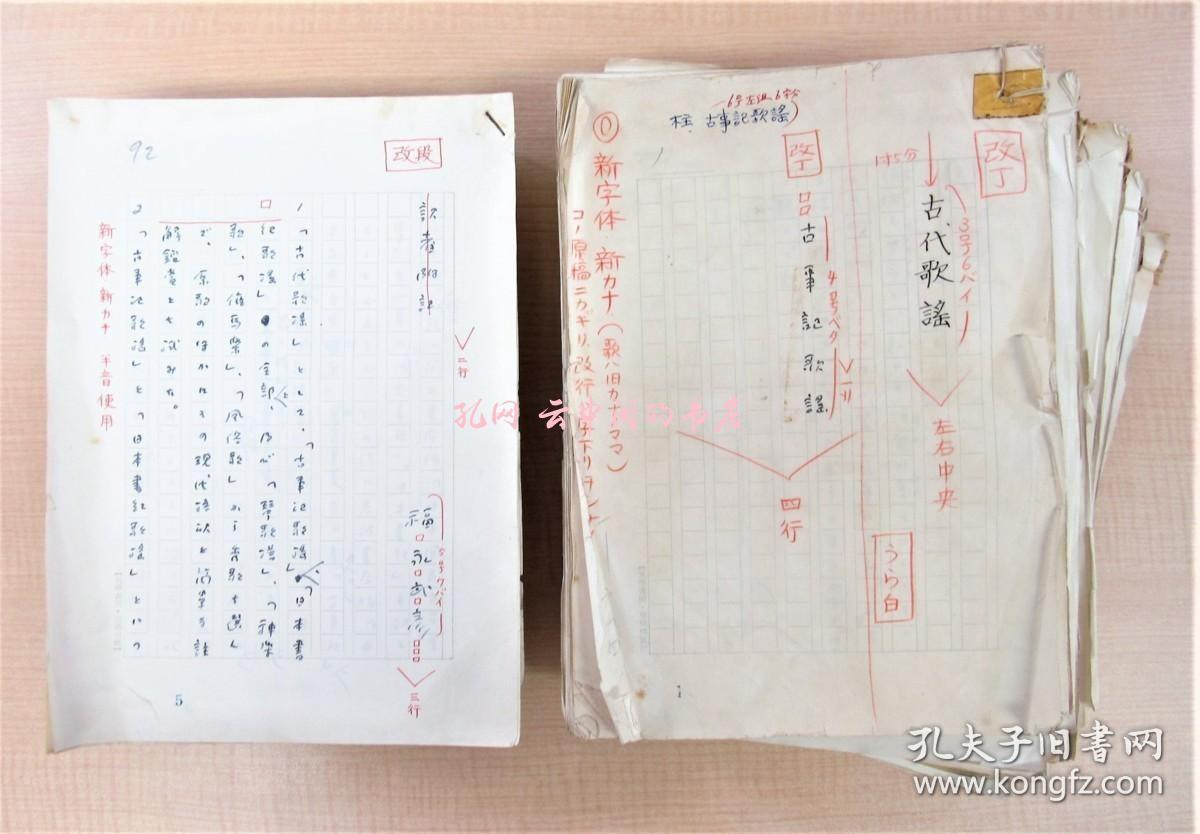 92
改段
訳者附記
二行
福永武彦
5号クバイ
三行
1 「古代歌謡」として、「古事記歌謡」、「日本書
紀歌謡」の全部、及び「琴歌譜」、「神楽
歌」、「催馬楽」、「風俗歌」から秀歌を選ん
で、原歌のほかにその現代語訳と簡単な註
解鑑賞とを試みた。
2 「古事記歌謡」と「日本書紀歌謡」とにつ
新字体 新カナ 半音使用
5
改丁
古代歌謡
3号6バイ
左右中央
うら白
柱 古事記歌謡)
改丁
古事記歌謡
4号ベタ
四行
1
① 新字体 新カナ(歌ハ旧カナノママ)
コノ原稿ニカギリ改行
1
孔夫子旧书网
www.kongfz.com